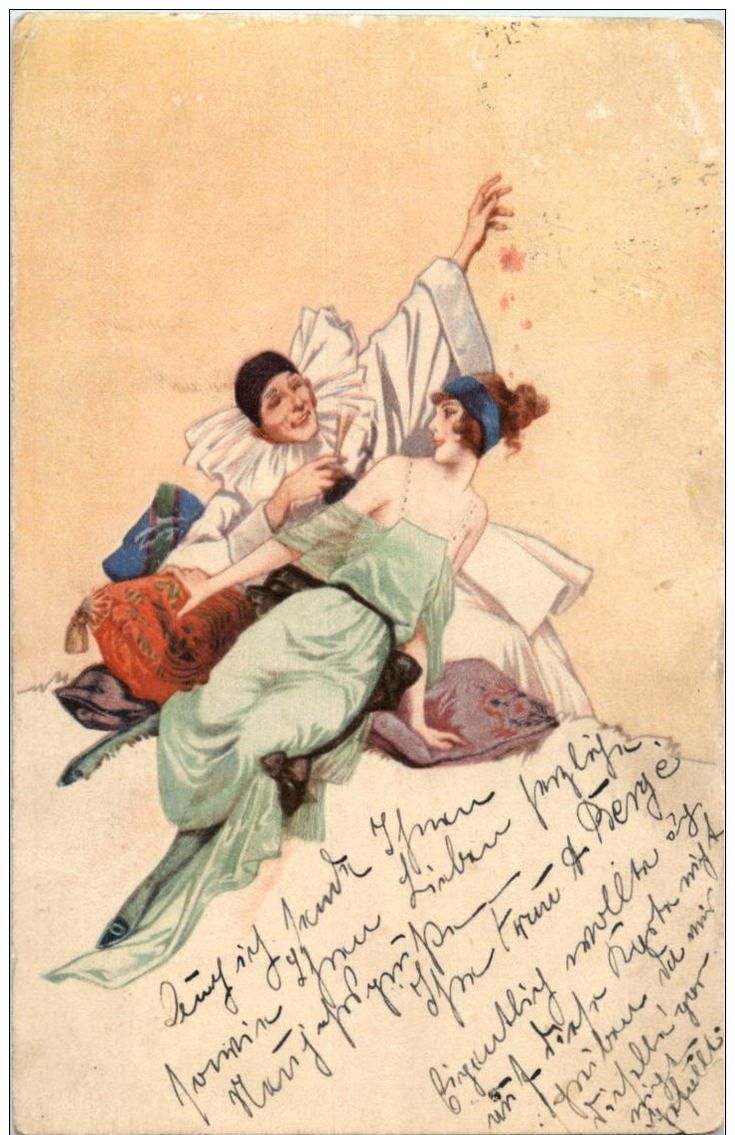 Auch ich sende Ihnen
sowie Ihren Lieben herzliche
Neujahrsgrüße
Ihre Frau A Berge
Eigentlich wollte ich
auf diese Karte nicht
schreiben da mir
dieselbe gar
nicht
gefällt.